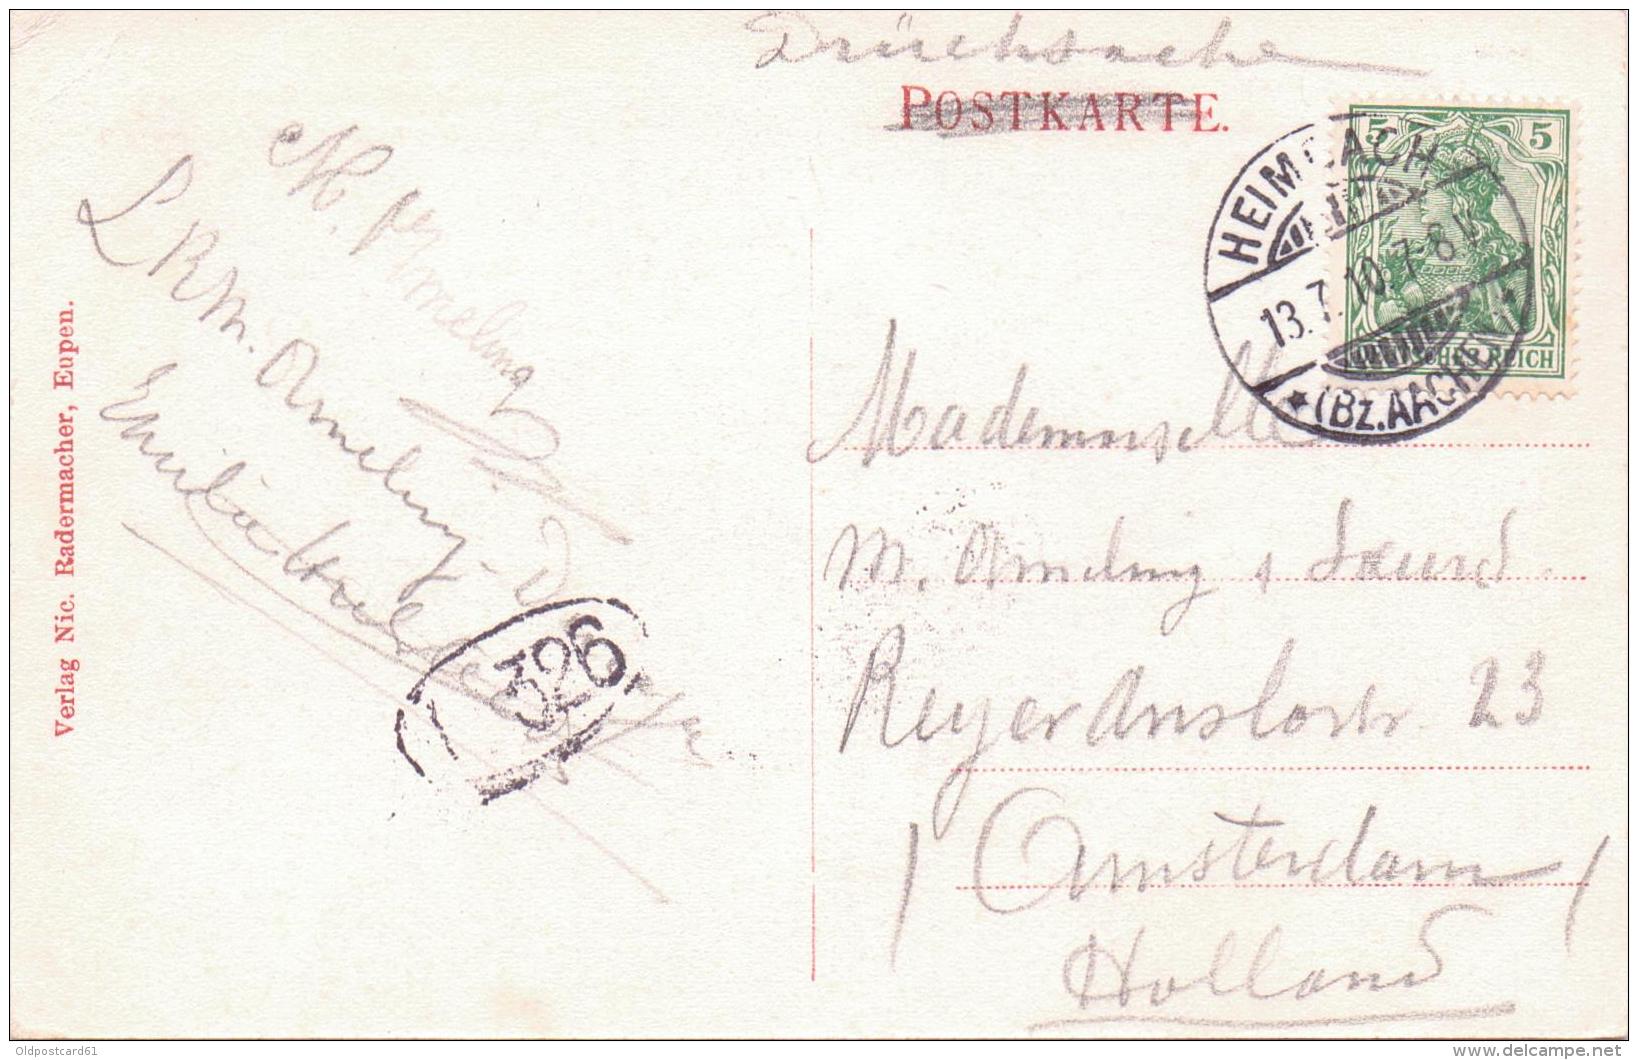 Drucksache
POSTKARTE.
5 5
DEUTSCHES REICH
HEIMBACH
13.7.10.7-8V
* (BZ.AACHEN)
M.
L. R. M. Ameling
Emilie
326
Mademoiselle
M. Ameling
Reyer Anslostr 23
Amsterdam
Holland
Verlag Nic. Radermacher, Eupen.
Oldpostcard61
www.delcampe.net